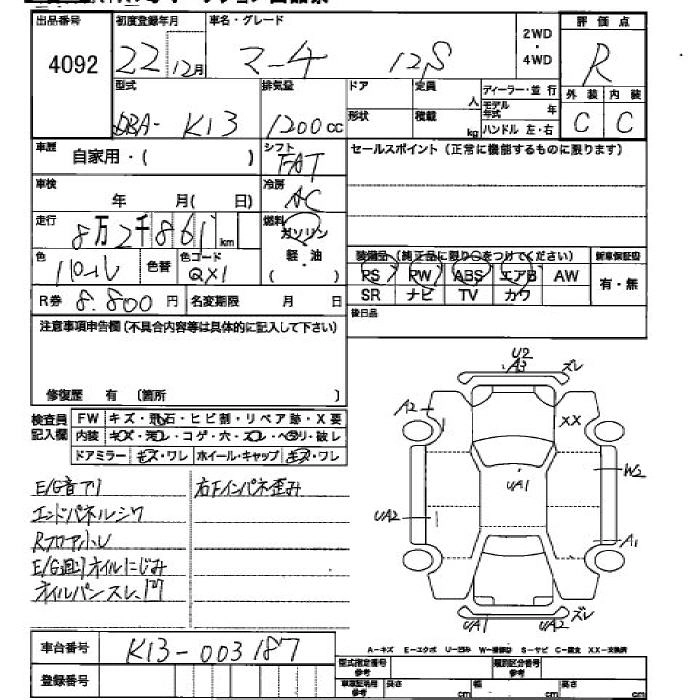 出品番号 4092
初度登録年月 22年 12月
車名・グレード マーチ 12S
2WD・4WD
評価点 R
型式 DBA- K13
排気量 1200cc
ドア
形状
定員 人
積載 kg
ディーラー・並行
モデル年式 年
ハンドル 左・右
外装 C
内装 C
車歴 自家用・( )
シフト FAT
セールスポイント(正常に機能するものに限ります)
車検 年 月( 日)
冷房 AC
走行 8万2千861km
燃料 ガソリン
軽・油
( )
色 パール
色替
色コード QX1
装備品(純正品に限り○をつけてください)
新車保証書
PS PW ABS エアB AW
SR ナビ TV カワ
有・無
R券 8.800円
名変期限 月 日
後日品
注意事項申告欄(不具合内容等は具体的に記入して下さい)
修復歴 有 (箇所 )
検査員記入欄
FW キズ・飛石・ヒビ割・リペア跡・X要
内装 キズ・汚レ・コゲ・穴・スレ・ヘタリ・破レ
ドアミラー キズ・ワレ ホイール・キャップ キズ・ワレ
E/G音アリ
エンドパネルシワ
E/G廻りオイルにじみ
右Fインパネ歪み
U2
A3
ズレ
A2
XX
W2
UA1
UA2
A1
UA1
UA2
ズレ
車台番号 K13-003187
登録番号
A-キズ E-エクボ U-凹み W-補修跡 S-サビ C-腐食 XX-交換済
型式指定番号 参考
類別区分番号 参考
車庫証明用 参考
長さ cm
幅 cm
高さ cm